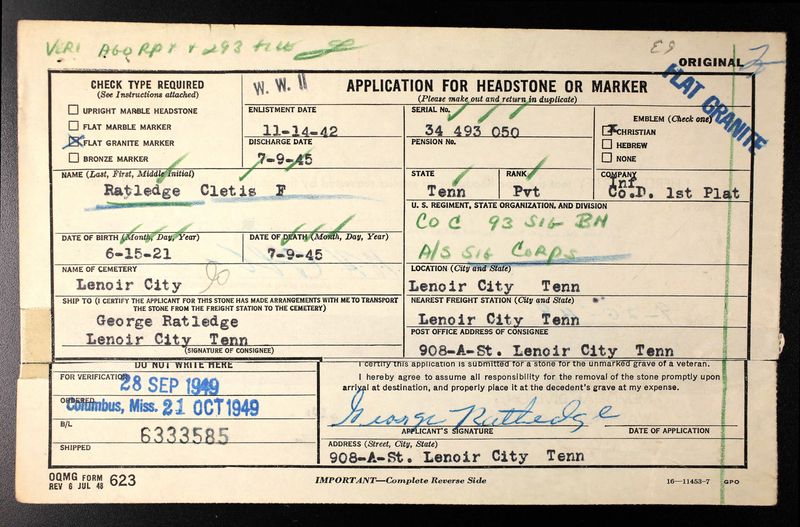 VERI AGO RPT + 293 FILE
ORIGINAL
W. W. II
FLAT GRANITE
CHECK TYPE REQUIRED
(See Instructions attached)
UPRIGHT MARBLE HEADSTONE
FLAT MARBLE MARKER
FLAT GRANITE MARKER
BRONZE MARKER
APPLICATION FOR HEADSTONE OR MARKER
(Please make out and return in duplicate)
ENLISTMENT DATE
11-14-42
DISCHARGE DATE
7-9-45
SERIAL No.
34 493 050
PENSION No.
EMBLEM (Check one)
CHRISTIAN
HEBREW
NONE
NAME (Last, First, Middle Initial)
Ratledge Cletis F
STATE
Tenn
RANK
Pvt
COMPANY
Inf
Co.D. 1st Plat
U. S. REGIMENT, STATE ORGANIZATION, AND DIVISION
CO C 93 SIG BN
A/S SIG CORPS
DATE OF BIRTH (Month, Day, Year)
6-15-21
DATE OF DEATH (Month, Day, Year)
7-9-45
NAME OF CEMETERY
Lenoir City
LOCATION (City and State)
Lenoir City Tenn
SHIP TO (I CERTIFY THE APPLICANT FOR THIS STONE HAS MADE ARRANGEMENTS WITH ME TO TRANSPORT
THE STONE FROM THE FREIGHT STATION TO THE CEMETERY)
George Ratledge
Lenoir City Tenn
(SIGNATURE OF CONSIGNEE)
NEAREST FREIGHT STATION (City and State)
Lenoir City Tenn
POST OFFICE ADDRESS OF CONSIGNEE
908-A-St. Lenoir City Tenn
DO NOT WRITE HERE
FOR VERIFICATION
28 SEP 1949
ORDERED
Columbus, Miss. 21 OCT 1949
B/L
6333585
SHIPPED
I certify this application is submitted for a stone for the unmarked grave of a veteran.
I hereby agree to assume all responsibility for the removal of the stone promptly upon
arrival at destination, and properly place it at the decedent's grave at my expense.
George Ratledge
APPLICANT'S SIGNATURE
DATE OF APPLICATION
ADDRESS (Street, City, State)
908-A-St. Lenoir City Tenn
OQMG FORM
REV 6 JUL 48 623
IMPORTANT—Complete Reverse Side
16—11453-7 GPO